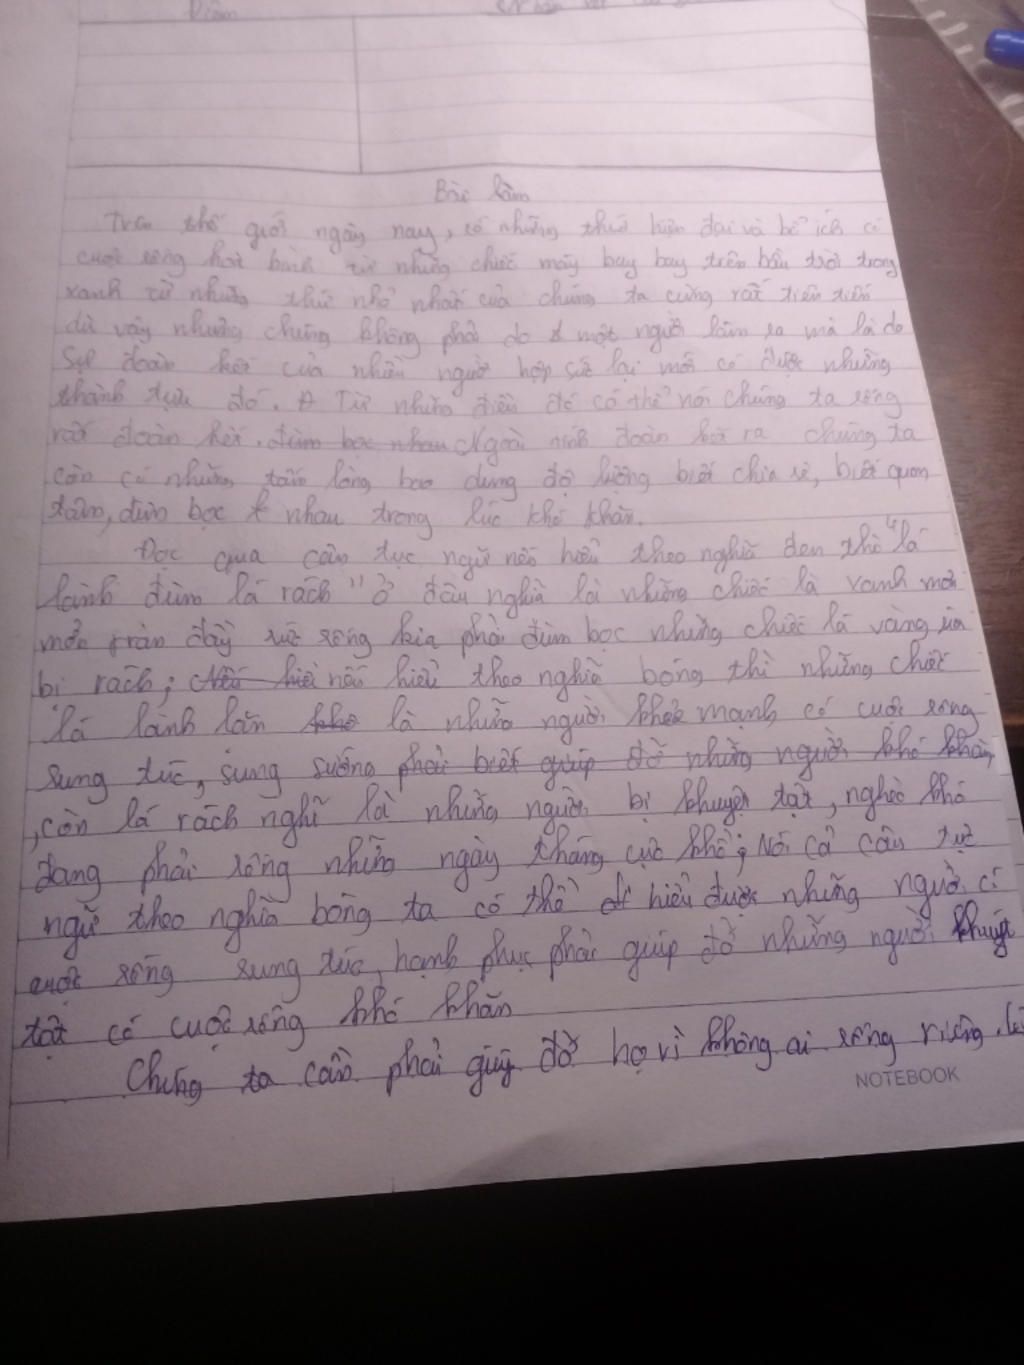 Điểm
Bài làm
Trên thế giới ngày nay, có những thứ hiện đại và bổ ích có
cuộc sống hoà bình từ những chiếc máy bay bay trên bầu trời trong
xanh từ những thứ nhỏ nhất của chúng ta cũng rất tiên tiến
dù vậy nhưng chúng không phải do một người làm ra mà là do
sự đoàn kết của nhiều người hợp sức lại mới có được những
thành tựu đó. Từ những điều đó có thể nói chúng ta sống
rất đoàn kết. đùm bọc nhau Ngoài tính đoàn kết ra chúng ta
còn có những tấm lòng bao dung độ lượng biết chia sẻ, biết quan
tâm, đùm bọc nhau trong lúc khó khăn.
Đọc qua câu tục ngữ nếu hiểu theo nghĩa đen thì "lá
lành đùm lá rách" ở đây nghĩa là những chiếc lá xanh mơn
mởn tràn đầy sức sống kia phải đùm bọc những chiếc lá vàng úa
bị rách; Nếu hiểu nếu hiểu theo nghĩa bóng thì những chiếc
lá lành lặn là những người khoẻ mạnh có cuộc sống
sung túc, sung sướng phải biết giúp đỡ những người khó khăn
, còn lá rách nghĩ là những người bị khuyết tật, nghèo khó
đang phải sống những ngày tháng cực khổ; Nói cả câu tục
ngữ theo nghĩa bóng ta có thể hiểu được những người có
cuộc sống sung túc, hạnh phục phải giúp đỡ những người khuyết
tật có cuộc sống khó khăn
Chúng ta cần phải giúp đỡ họ vì không ai sống riêng
NOTEBOOK